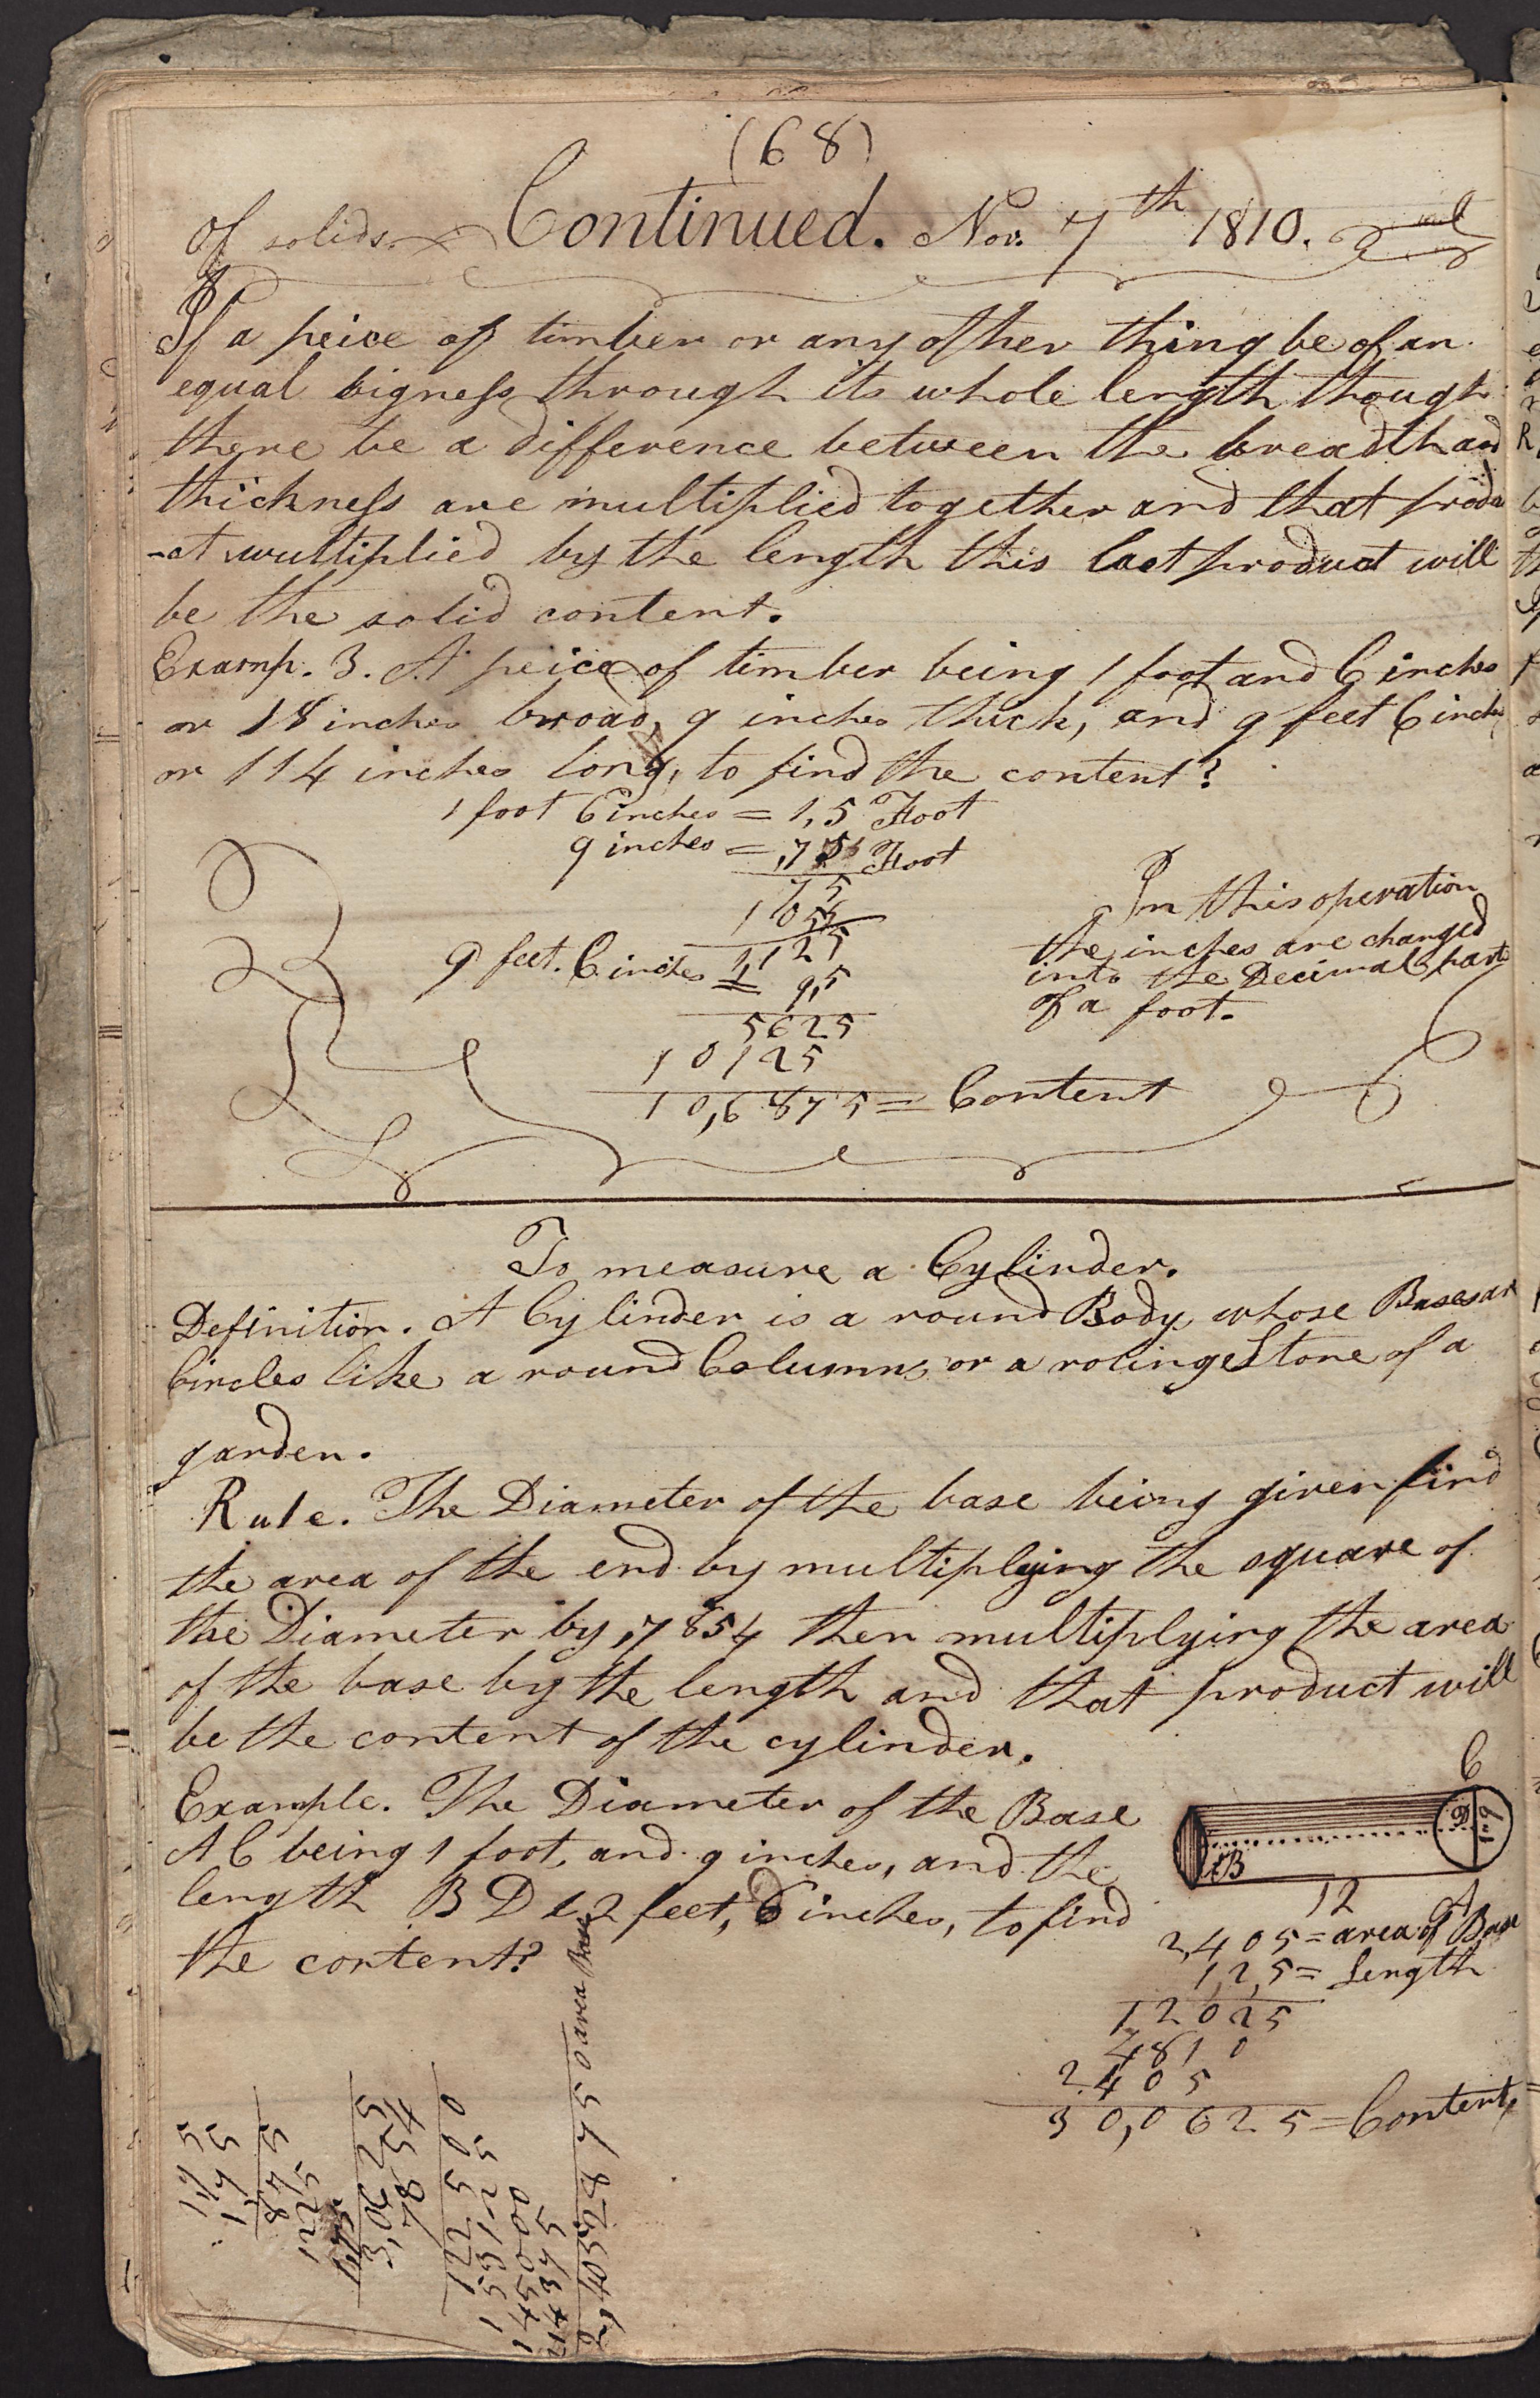 (68)
Of solids Continued. Nov. 7th 1810.
If a peice of timber or any other thing be of an
equal bigness through its whole length though
there be a difference between the breadth and
thickness are multiplied together and that produ
-ct multiplied by the length this last product will
be the solid content.
Examp. 3. A peice of timber being 1 foot and 6 inches
or 18 inches broad, 9 inches thick, and 9 feet 6 inches
or 114 inches long, to find the content?
1 foot 6 inches = 1,5 Foot
9 inches = ,75 Foot
75
105
1125
9 feet. 6 inches = 9,5
5625
10125
10,6875 = Content
In this operation
the inches are changed
into the Decimal part
of a foot.
To measure a Cylinder.
Definition. A Cylinder is a round Body whose Bases are
Circles like a round Column or a rolinge Stone of a
garden.
Rule. The Diameter of the base being given find
the area of the end by multiplying the square of
the Diameter by ,7854 then multiplying the area
of the base by the length and that product will
be the content of the cylinder.
Example. The Diameter of the Base
A C being 1 foot, and 9 inches, and the
length B D 12 feet, 6 inches, to find
the content?
C
D
1-9
B
12
A
2,405 = area of Base
12,5 = Length
12025
4810
2405
30,0625 = Content,
1,75
1,75
875
1225
175
3,0625
,7854
122500
153125
245000
214375
2,40528750 area Base